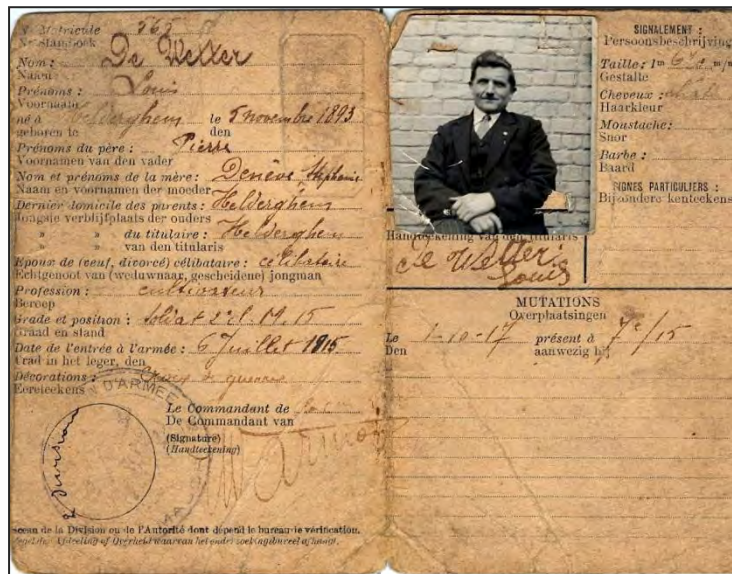 No Matricule 565
No Stamboek
Nom : De Wetter
Naam
Prénoms : Louis
Voornaam
né à Helderghem le 5 novembre 1893
geboren te den
Prénoms du père : Pierre
Voornamen van den vader
Nom et prénoms de la mère : Denève Stéphanie
Naam en voornamen der moeder
Dernier domicile des parents : Helderghem
Jongste verblijfplaats der ouders
» » du titulaire : Helderghem
» » van den titularis
Epoux de (veuf, divorcé) célibataire : célibataire
Echtgenoot van (weduwnaar, gescheidene) jongman
Profession : cultivateur
Beroep
Grade et position : soldat 2e cl. M. 15
Graad en stand
Date de l'entrée à l'armée : 6 Juillet 1915
Trad in het leger, den
Décorations : croix de guerre
Eereteekens
D'ARMEE
2e Division
Le Commandant de
De Commandant van
(Signature)
(Handteekening)
Sceau de la Division ou de l'Autorité dont dépend le bureau de vérification.
Zegel der Afdeeling of Overheid waarvan het onderzoekingsbureel afhangt.
SIGNALEMENT :
Persoonsbeschrijving
Taille : 1m 670 m/m
Gestalte
Cheveux :
Haarkleur
Moustache :
Snor
Barbe :
Baard
SIGNES PARTICULIERS :
Bijzondere kenteekens
Handteekening van den titularis
De Wetter
Louis
MUTATIONS
Overplaatsingen
Le 1-10-17 présent à 7e/15
Den aanwezig bij